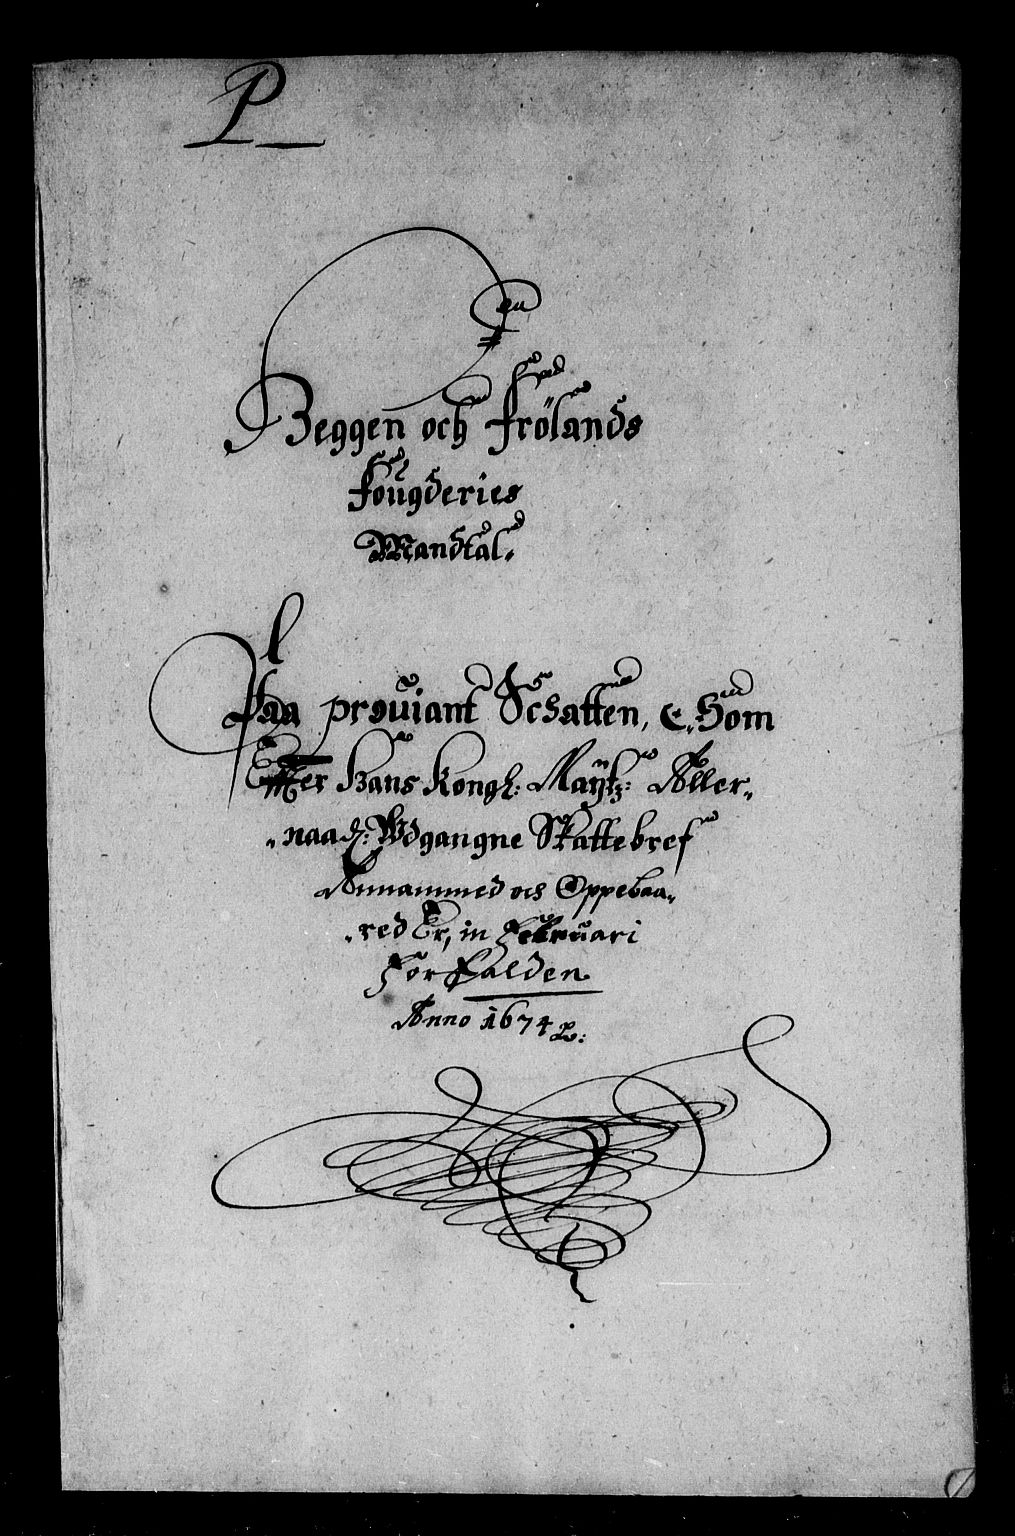 P
Beggen och Frölands
Fougderies
Mandtal.
Paa proviant Schatten, e. Som
Effter Hans Kongl: Maÿtz: Aller-
-naad: Udgangne Skattebref
Annammed och Oppebaa-
-red Er, in Februari
For falden
Anno 1674